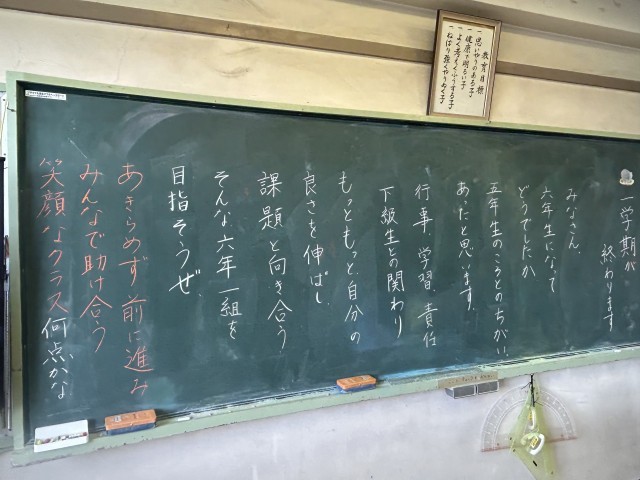 一学期が
終わります
みなさん、
六年生になって
どうでしたか
五年生のころとのちがい、
あったと思います。
行事、学習、責任
下級生との関わり
もっともっと、自分の
良さを伸ばし、
課題と向き合う
そんな六年一組を
目指そうぜ、
あきらめず前に進み
みんなで助け合う
笑顔なクラス何点かな
教育目標
一思いやりのある子
一健康で明るい子
一よく考えくふうする子
一ねばり強くやりぬく子